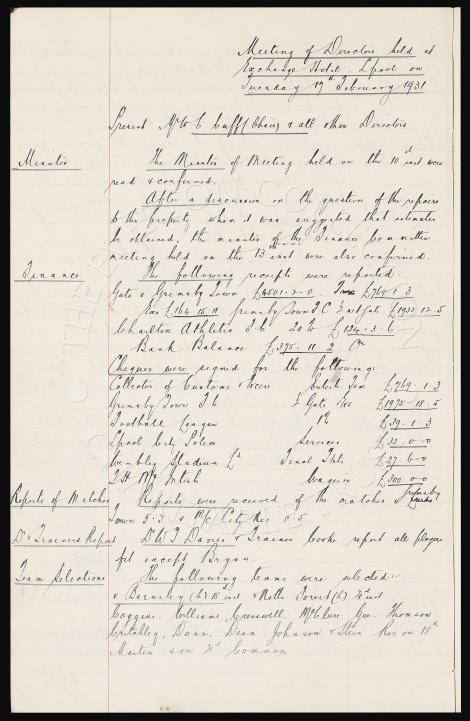 Meeting of Directors held at
Exchange Hotel. L'pool on
Tuesday 17th February 1931
Present Mr W C Cuff (Chair) & all other Directors
Minutes The Minutes of Meeting held on the 10th inst were
read & confirmed.
After a discussion on the question of the repairs
to the property when it was suggested that estimates
be obtained, the minutes of the Finance Committee
meeting held on the 13th inst were also confirmed.
Finance The following receipts were reported:
Gate v Grimsby Town £4801-2-0 Tax £769-1-3
Exs £164-15-11 Grimsby Town F C ½ net Gate £1933-12-5
Charlton Athletic F C 20% £134-3-6
Bank Balance £375-11-2 Cr
Cheques were signed for the following:
Collector of Customs & Excise Entertt Tax £769-1-3
Grimsby Town F C ½ Gate Exs £1975-18-5
Football League 1% £39-1-3
L'pool City Police Services £33-0-0
Wembley Stadium Ld Final Tkts £27-6-0
Wages £300-0-0
Reports of Matches Reports were received of the matches v Grimsby
Town 5.3 & M/c City Res 0.5
Dr & Trainers Report Dr W J Davies & Trainer Cooke report all players
fit except Bryan.
Team Selections The following teams were selected:-
v Barnsley (h) 18th inst v Notts Forest (h) 21st inst
Coggins. Williams, Cresswell. McClure Gee. Thomson
Critchley, Dunn, Dean Johnson & Stein Res on 18th
Martin &on 21st Common.